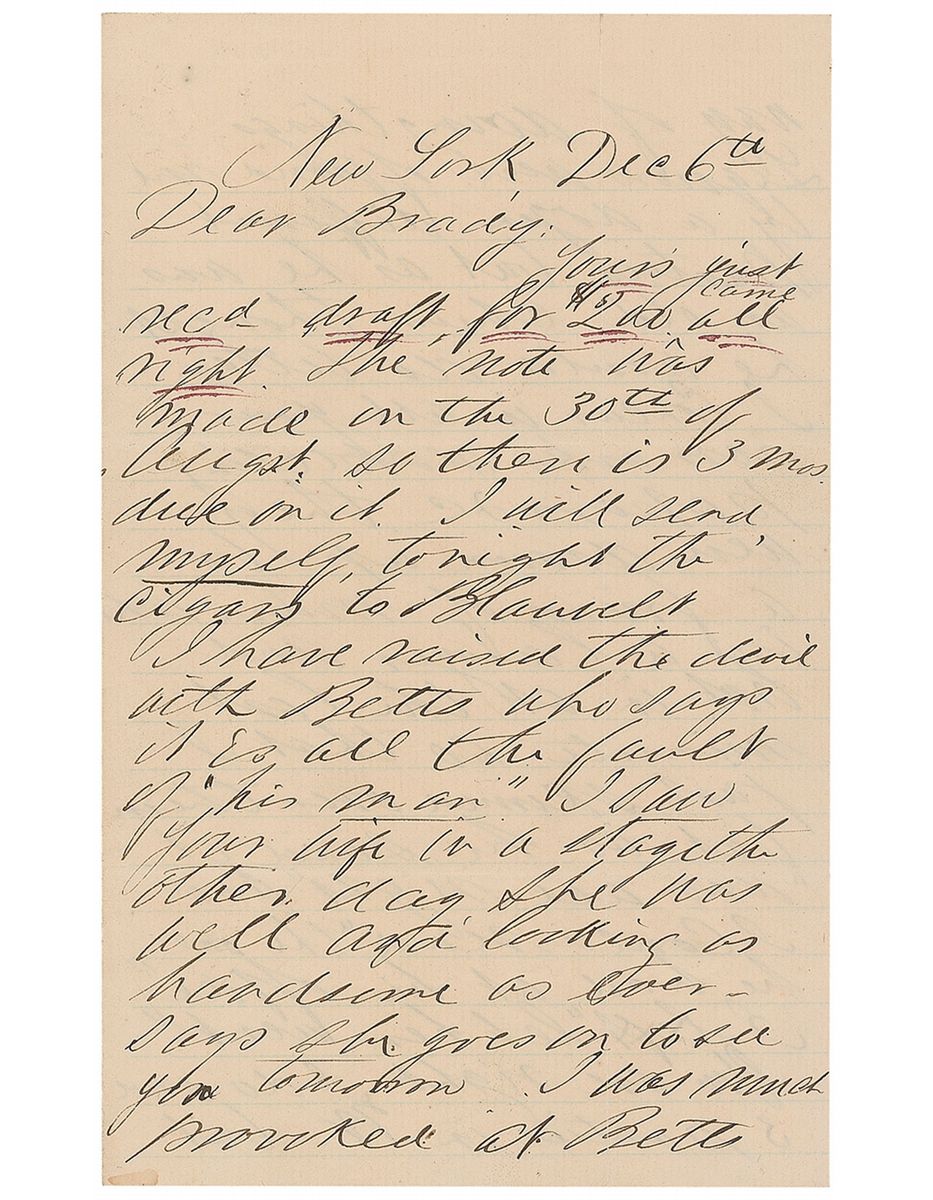 New York Dec 6th
Dear Brady.
Yours just
came
recd draft, for $200. all
right. The note was
made on the 30th of
Augst. so then is 3 mos.
due on it. I will send,
myself, tonight the
cigars to Blauvelt
I have raised the devil
with Betts who says
it is all the fault
of "his man" I saw
your wife in a stage the
other. day She was
well and looking as
handsome as ever -
says she goes on to see
you tomorrow. I was much
provoked at Betts